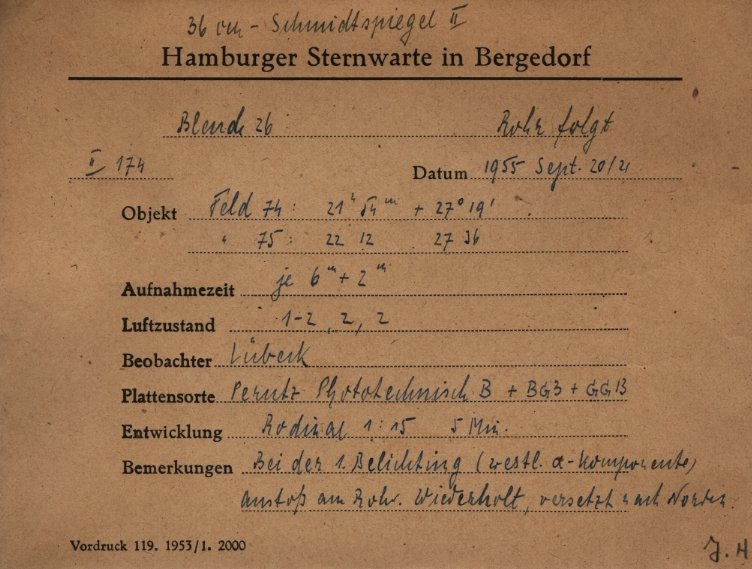 36 cm - Schmidtspiegel II
Hamburger Sternwarte in Bergedorf
Blende 26 Rohr folgt
II 174 Datum 1955 Sept. 20/21
Objekt Feld 74: 21h 54m + 27° 19'
" 75: 22 12 27 36
Aufnahmezeit je 6m + 2m
Luftzustand 1-2, 2, 2
Beobachter Lübeck
Plattensorte Perutz Phototechnisch B + BG3 + GG13
Entwicklung Rodinal 1:15 5 Min.
Bemerkungen Bei der 1. Belichtung (westl. α-Komponente)
anstoß am Rohr. Wiederholt, versetzt nach Norden.
Vordruck 119. 1953/1. 2000
J. H